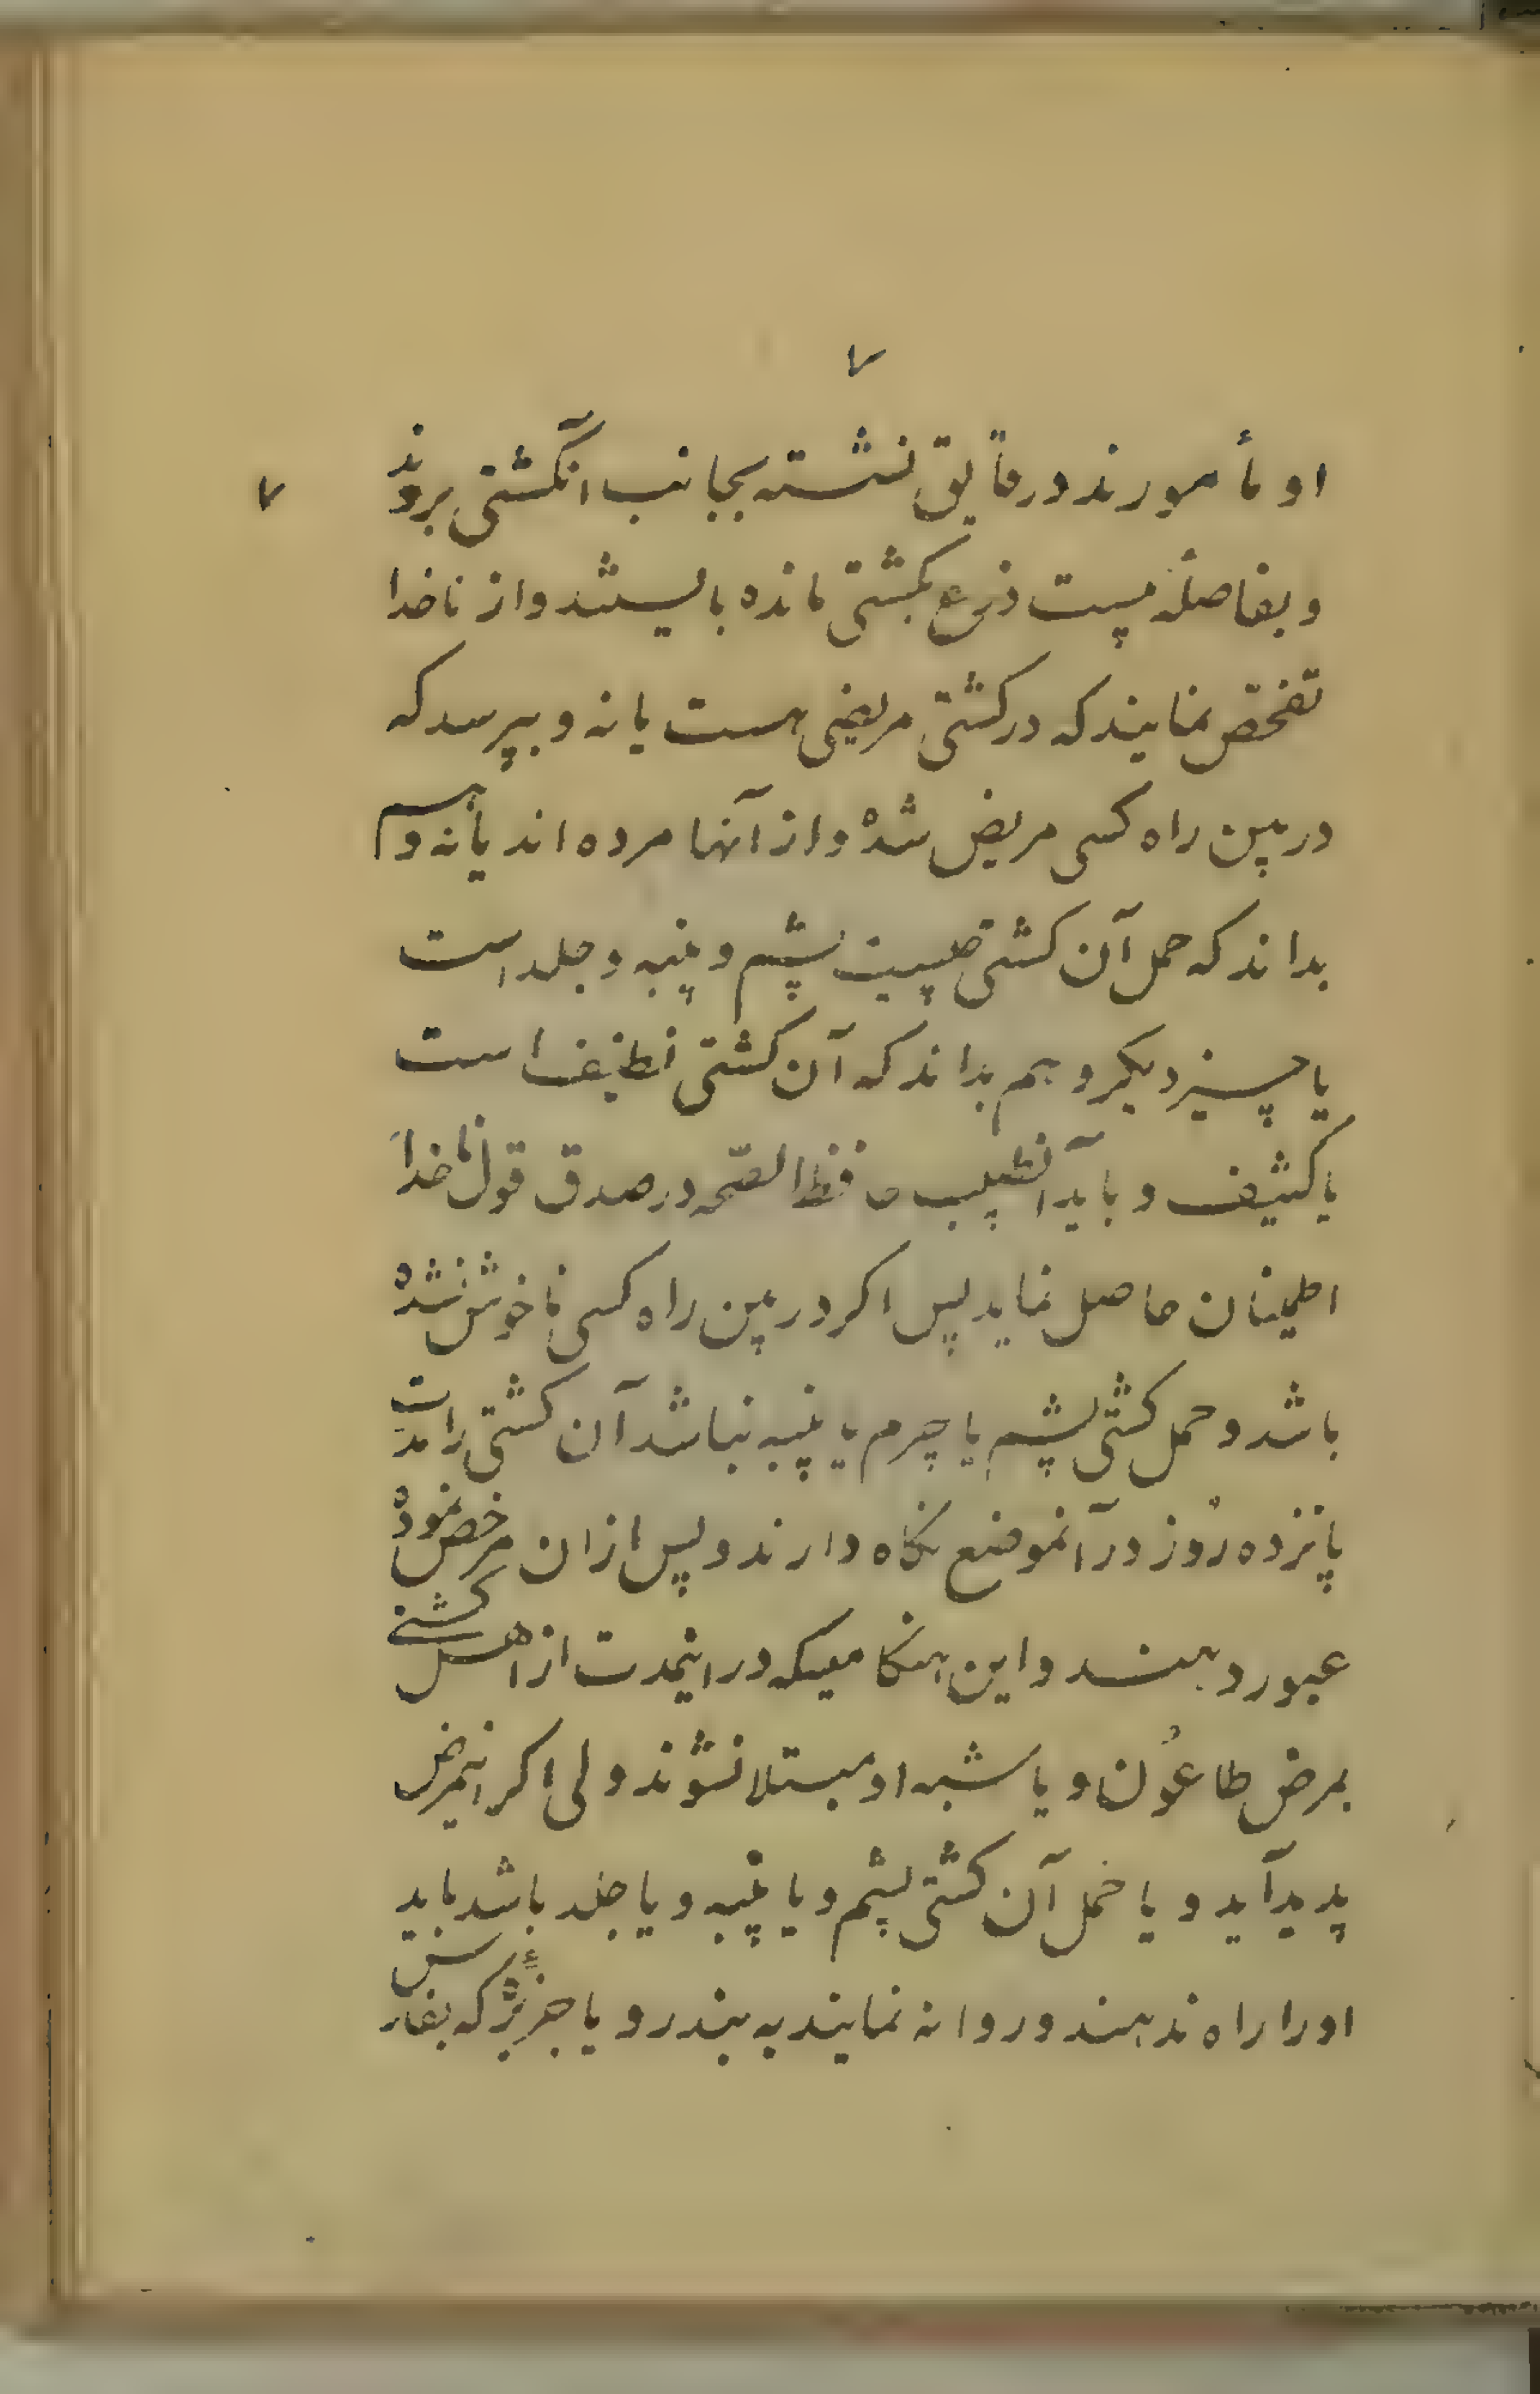 ۷
۷
او مأمورند در قایق نشسته بجانب آنکشتی بروند
و بفاصلهٔ بیست ذرع بکشتی مانده بایستند و از ناخدا
تفحّص نمایند که در کشتی مریضی هست یا نه و بپرسد که
در بین راه کسی مریض شده و از آنها مرده اند یا نه و هم
بداند که حمل آن کشتی چیست پشم و پنبه و جلد است
یا چیز دیگر و هم بداند که آن کشتی نظیف است
یا کثیف و باید آنطبیب حافظ الصّحه در صدق قول ناخدا
اطمینان حاصل نماید پس اکر در بین راه کسی ناخوش نشده
باشد و حمل کشتی پشم یا چرم یا پنبه نباشد آن کشتی را مدت
پانزده روز در آنموضع نکاه دارند و پس از ان مرخص نموده
عبور دهند و این هنکامیکه در اینمدت از اهل کشتی
بمرض طاعُون و یا شبه او مبتلا نشوند ولی اکر اینمرض
پدید آید و یا حمل آن کشتی پشم و یا پنبه و یا جلد باشد باید
او را راه ندهند و روانه نمایند به بندر و یا جزیرهٔ که بفارسی